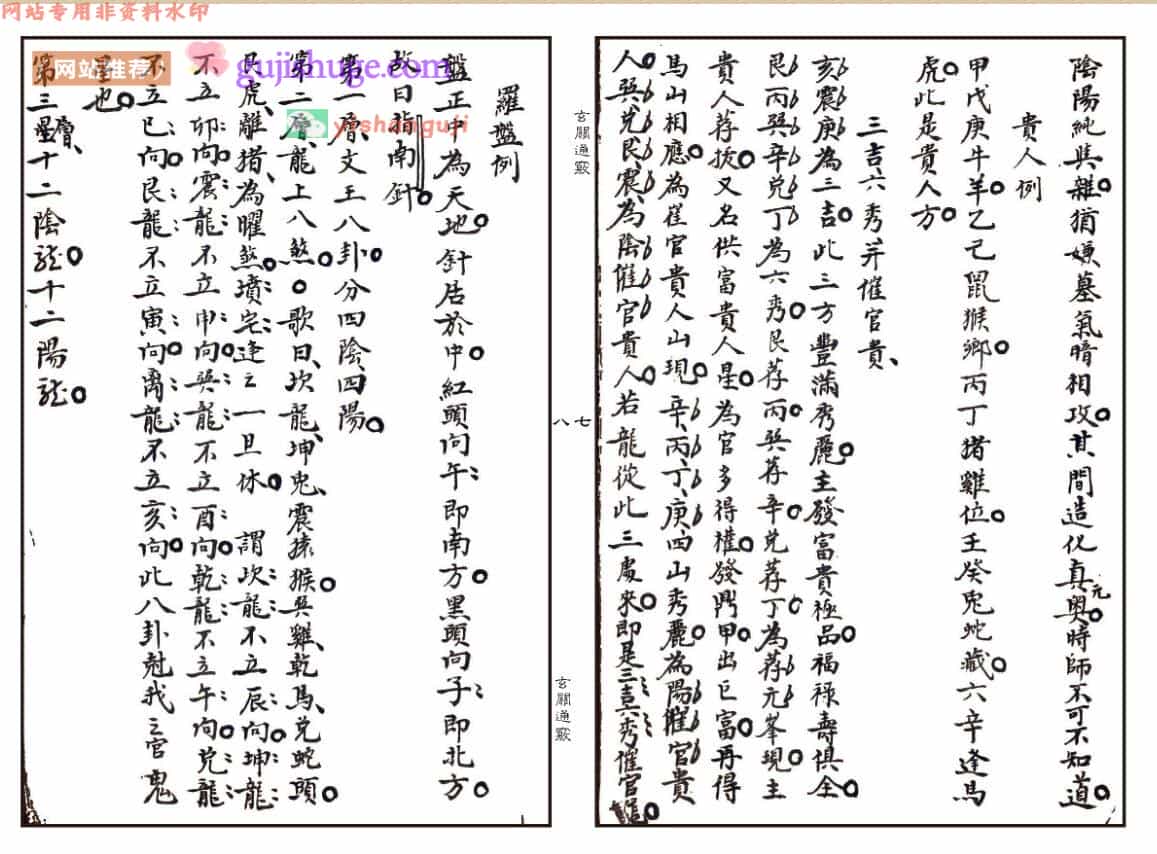 网站专用非资料水印
陰陽純與雜猶嫌墓氣暗相攻其間造化真元奧時師不可不知道
貴人例
甲戊庚牛羊乙己鼠猴鄉丙丁猪雞位壬癸兎蛇藏六辛逢馬
虎此是貴人方
三吉六秀并催官貴
亥震庚為三吉此三方豐滿秀麗主發富貴極品福祿壽俱全
艮丙巽辛兌丁為六秀艮荐丙巽荐辛兌荐丁為荐元峯現主
貴人荐拔又名供富貴人星為官多得權發門甲出巨富再得
馬山相應為崔官貴人山現辛丙丁庚四山秀麗為陽催官貴
人巽兌艮震為陰催官貴人若龍從此三處來即是三真秀催官
玄關通竅
八七
玄關通竅
羅盤例
盤正中為天地針居於中紅頭向午即南方黑頭向子即北方
故曰指南針
第一層文王八卦分四陰四陽
第二層龍上八煞歌曰坎龍坤兎震猿猴巽雞乾馬兌蛇頭
艮虎離猪為曜煞墳宅逢之一旦休 謂坎龍不立辰向坤龍
不立卯向震龍不立申向巽龍不立酉向乾龍不立午向兌龍
不立巳向艮龍不立寅向离龍不立亥向此八卦尅我之官鬼
星也
第三層十二陰龍十二陽龍
网站推荐
gujishuge.com
yishanguji